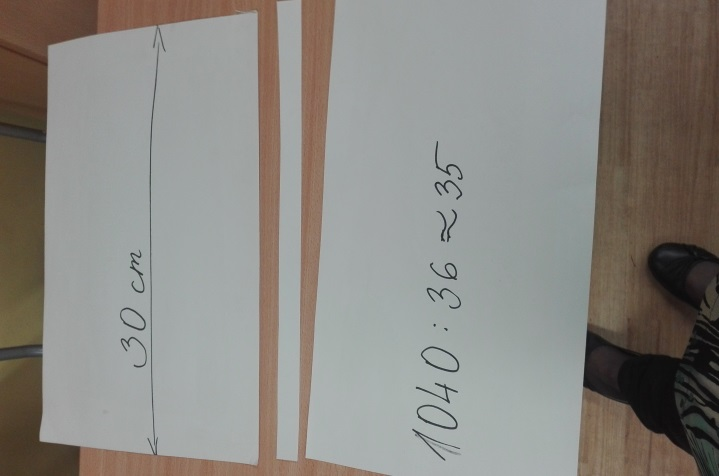 30 cm
1040 : 36 ≈ 35